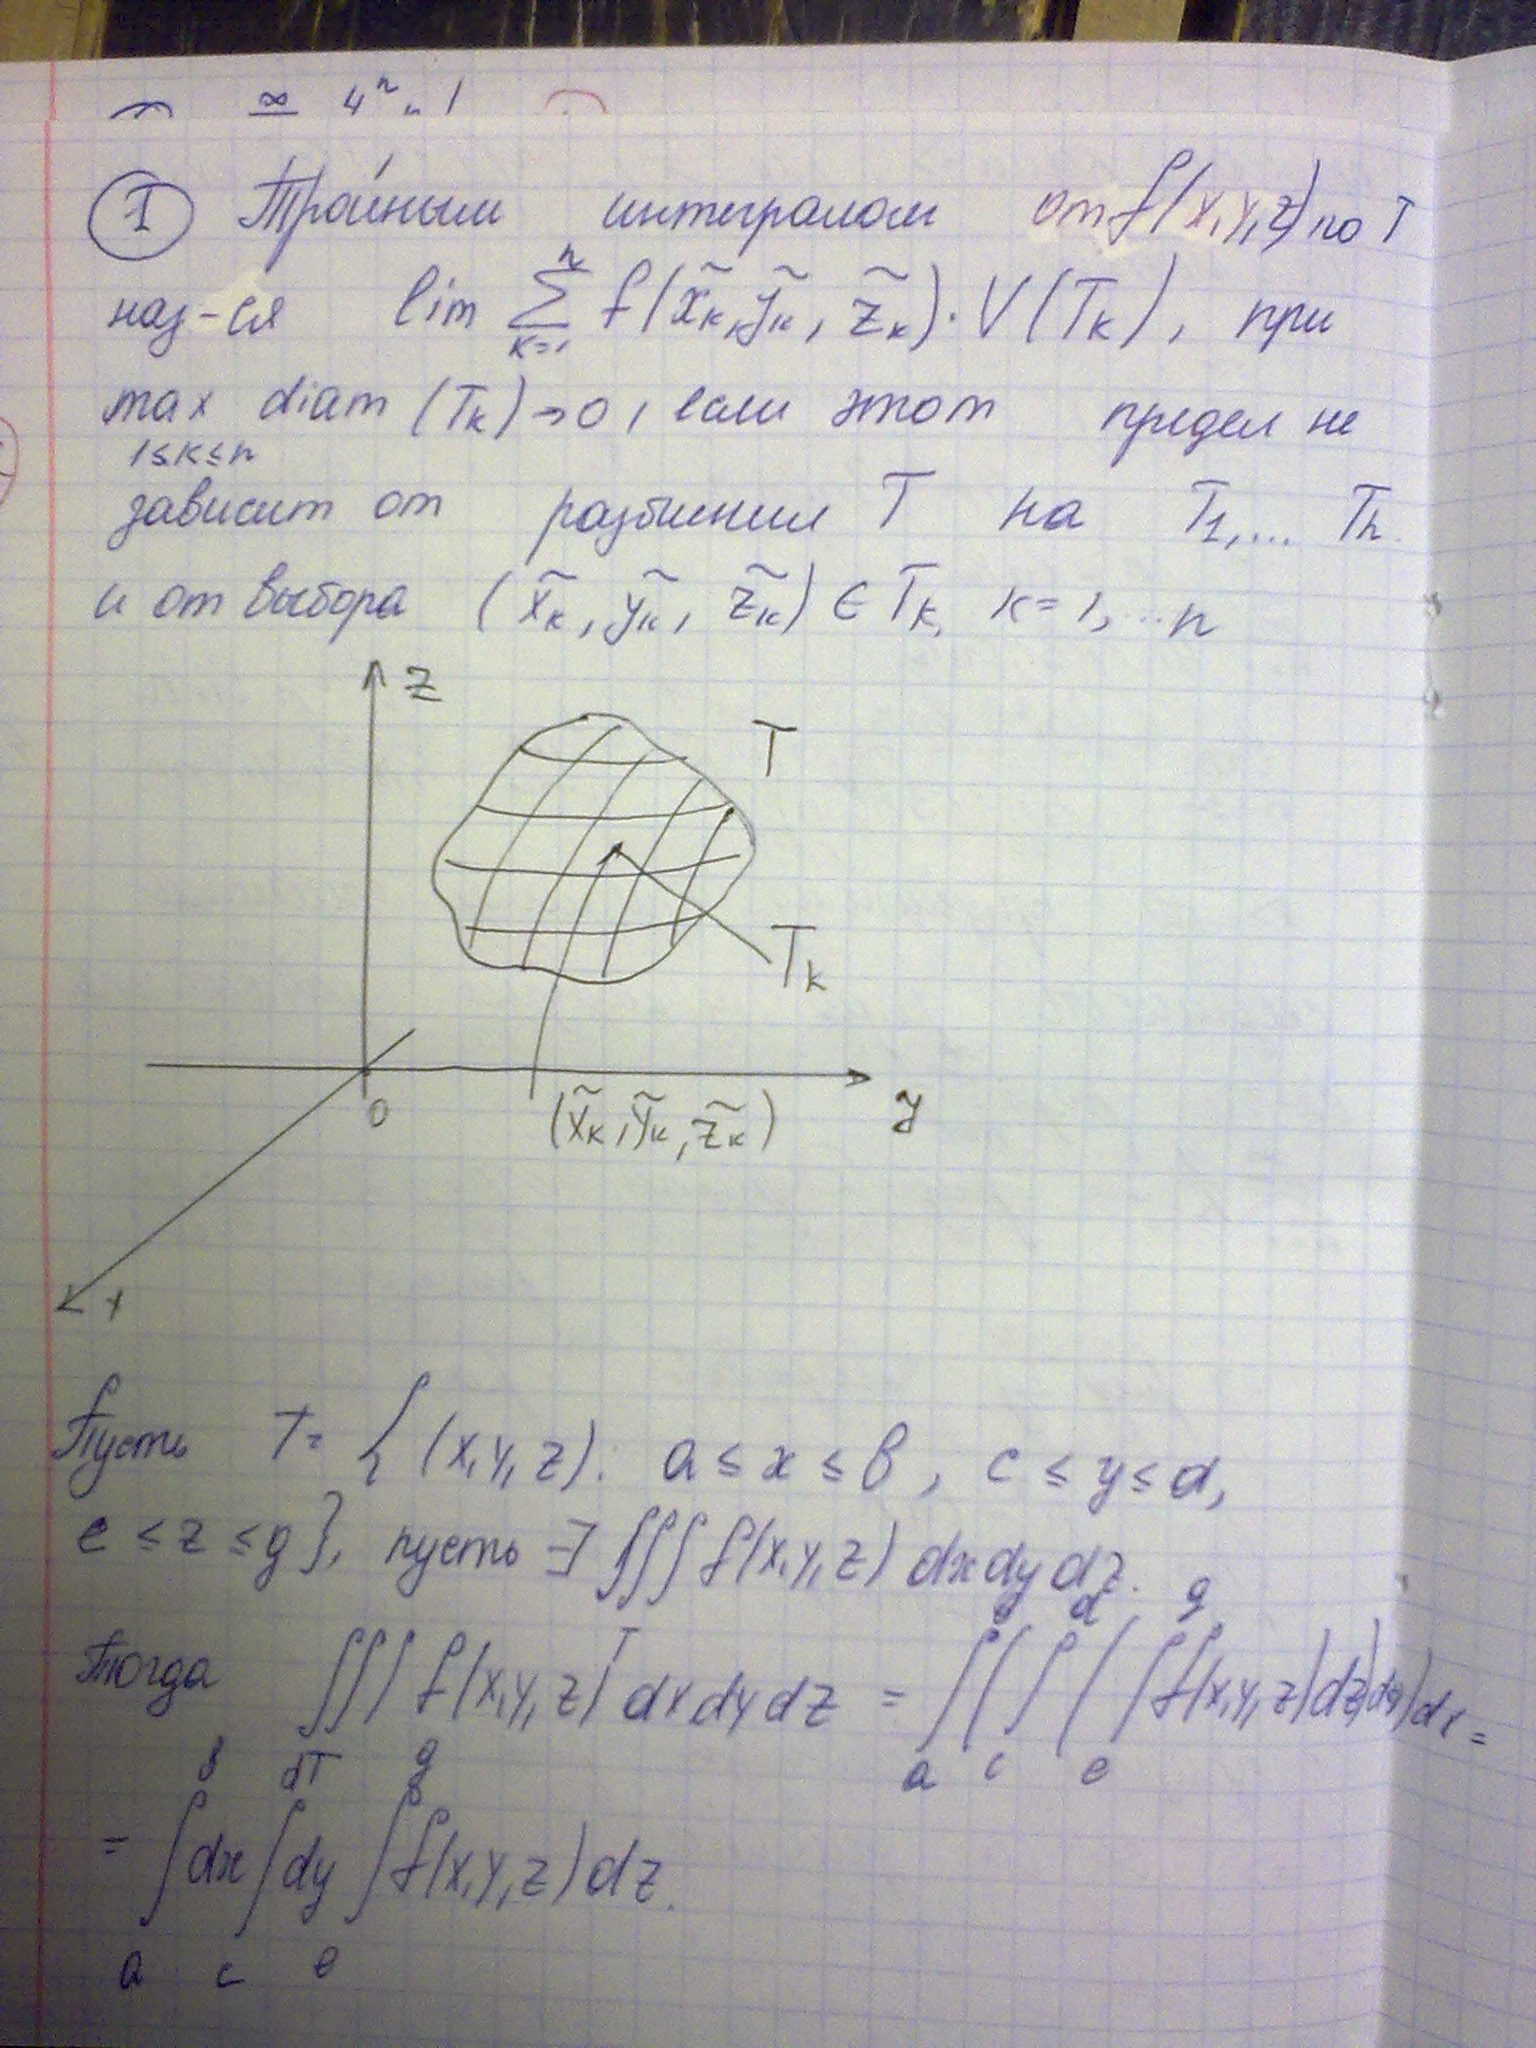 ≃ 4ⁿ · 1
① Тройным интегралом от f(x,y,z) по T
наз-ся lim ∑ₖ₌₁ⁿ f(x̃ₖ, ỹₖ, z̃ₖ)·V(Tₖ), при
max diam (Tₖ)→0, если этот предел не
1≤k≤n
зависит от разбиения T на T₁,... Tₙ.
и от выбора (x̃ₖ, ỹₖ, z̃ₖ) ∈ Tₖ, k=1,...n
z
T
Tₖ
0
(x̃ₖ, ỹₖ, z̃ₖ)
y
x
Пусть T= {(x,y,z): a ≤ x ≤ b, c ≤ y ≤ d,
e ≤ z ≤ g}, пусть ∃ ∭ f(x,y,z) dx dy dz.
T
b d g
Тогда ∭ f(x,y,z) dx dy dz = ∫(∫(∫f(x,y,z)dz)dy)dx =
T a c e
b d g
= ∫dx∫dy∫f(x,y,z)dz.
a c e